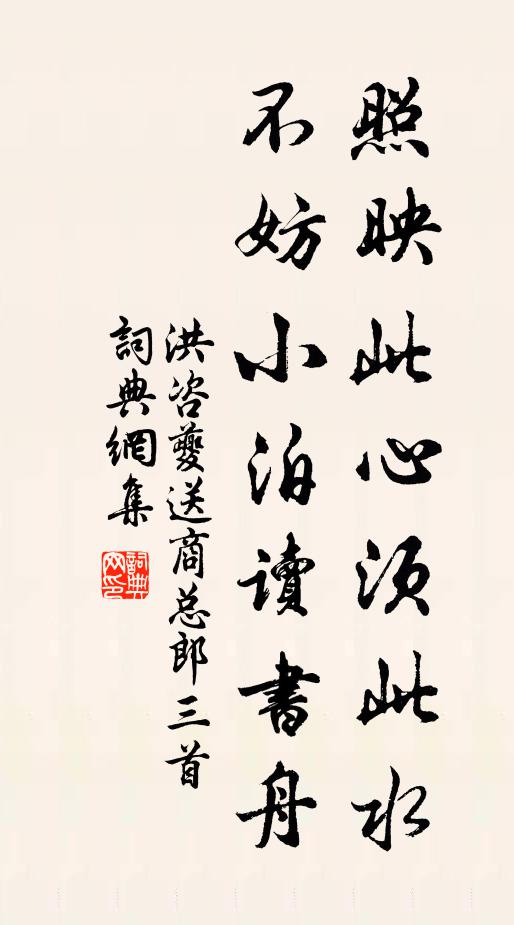 照映此心須此水
不妨小泊讀書舟
洪咨夔送商总郎三首
詞典網集
詞典網印